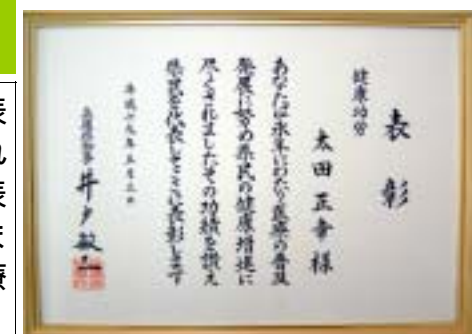 表彰
健康功労
太田正幸様
あなたは永年にわたり医療の普及
発展に努め県民の健康増進に
尽くされましたその功績を讃え
県民を代表してここに表彰します
平成十九年五月三日
兵庫県知事 井戸敏三